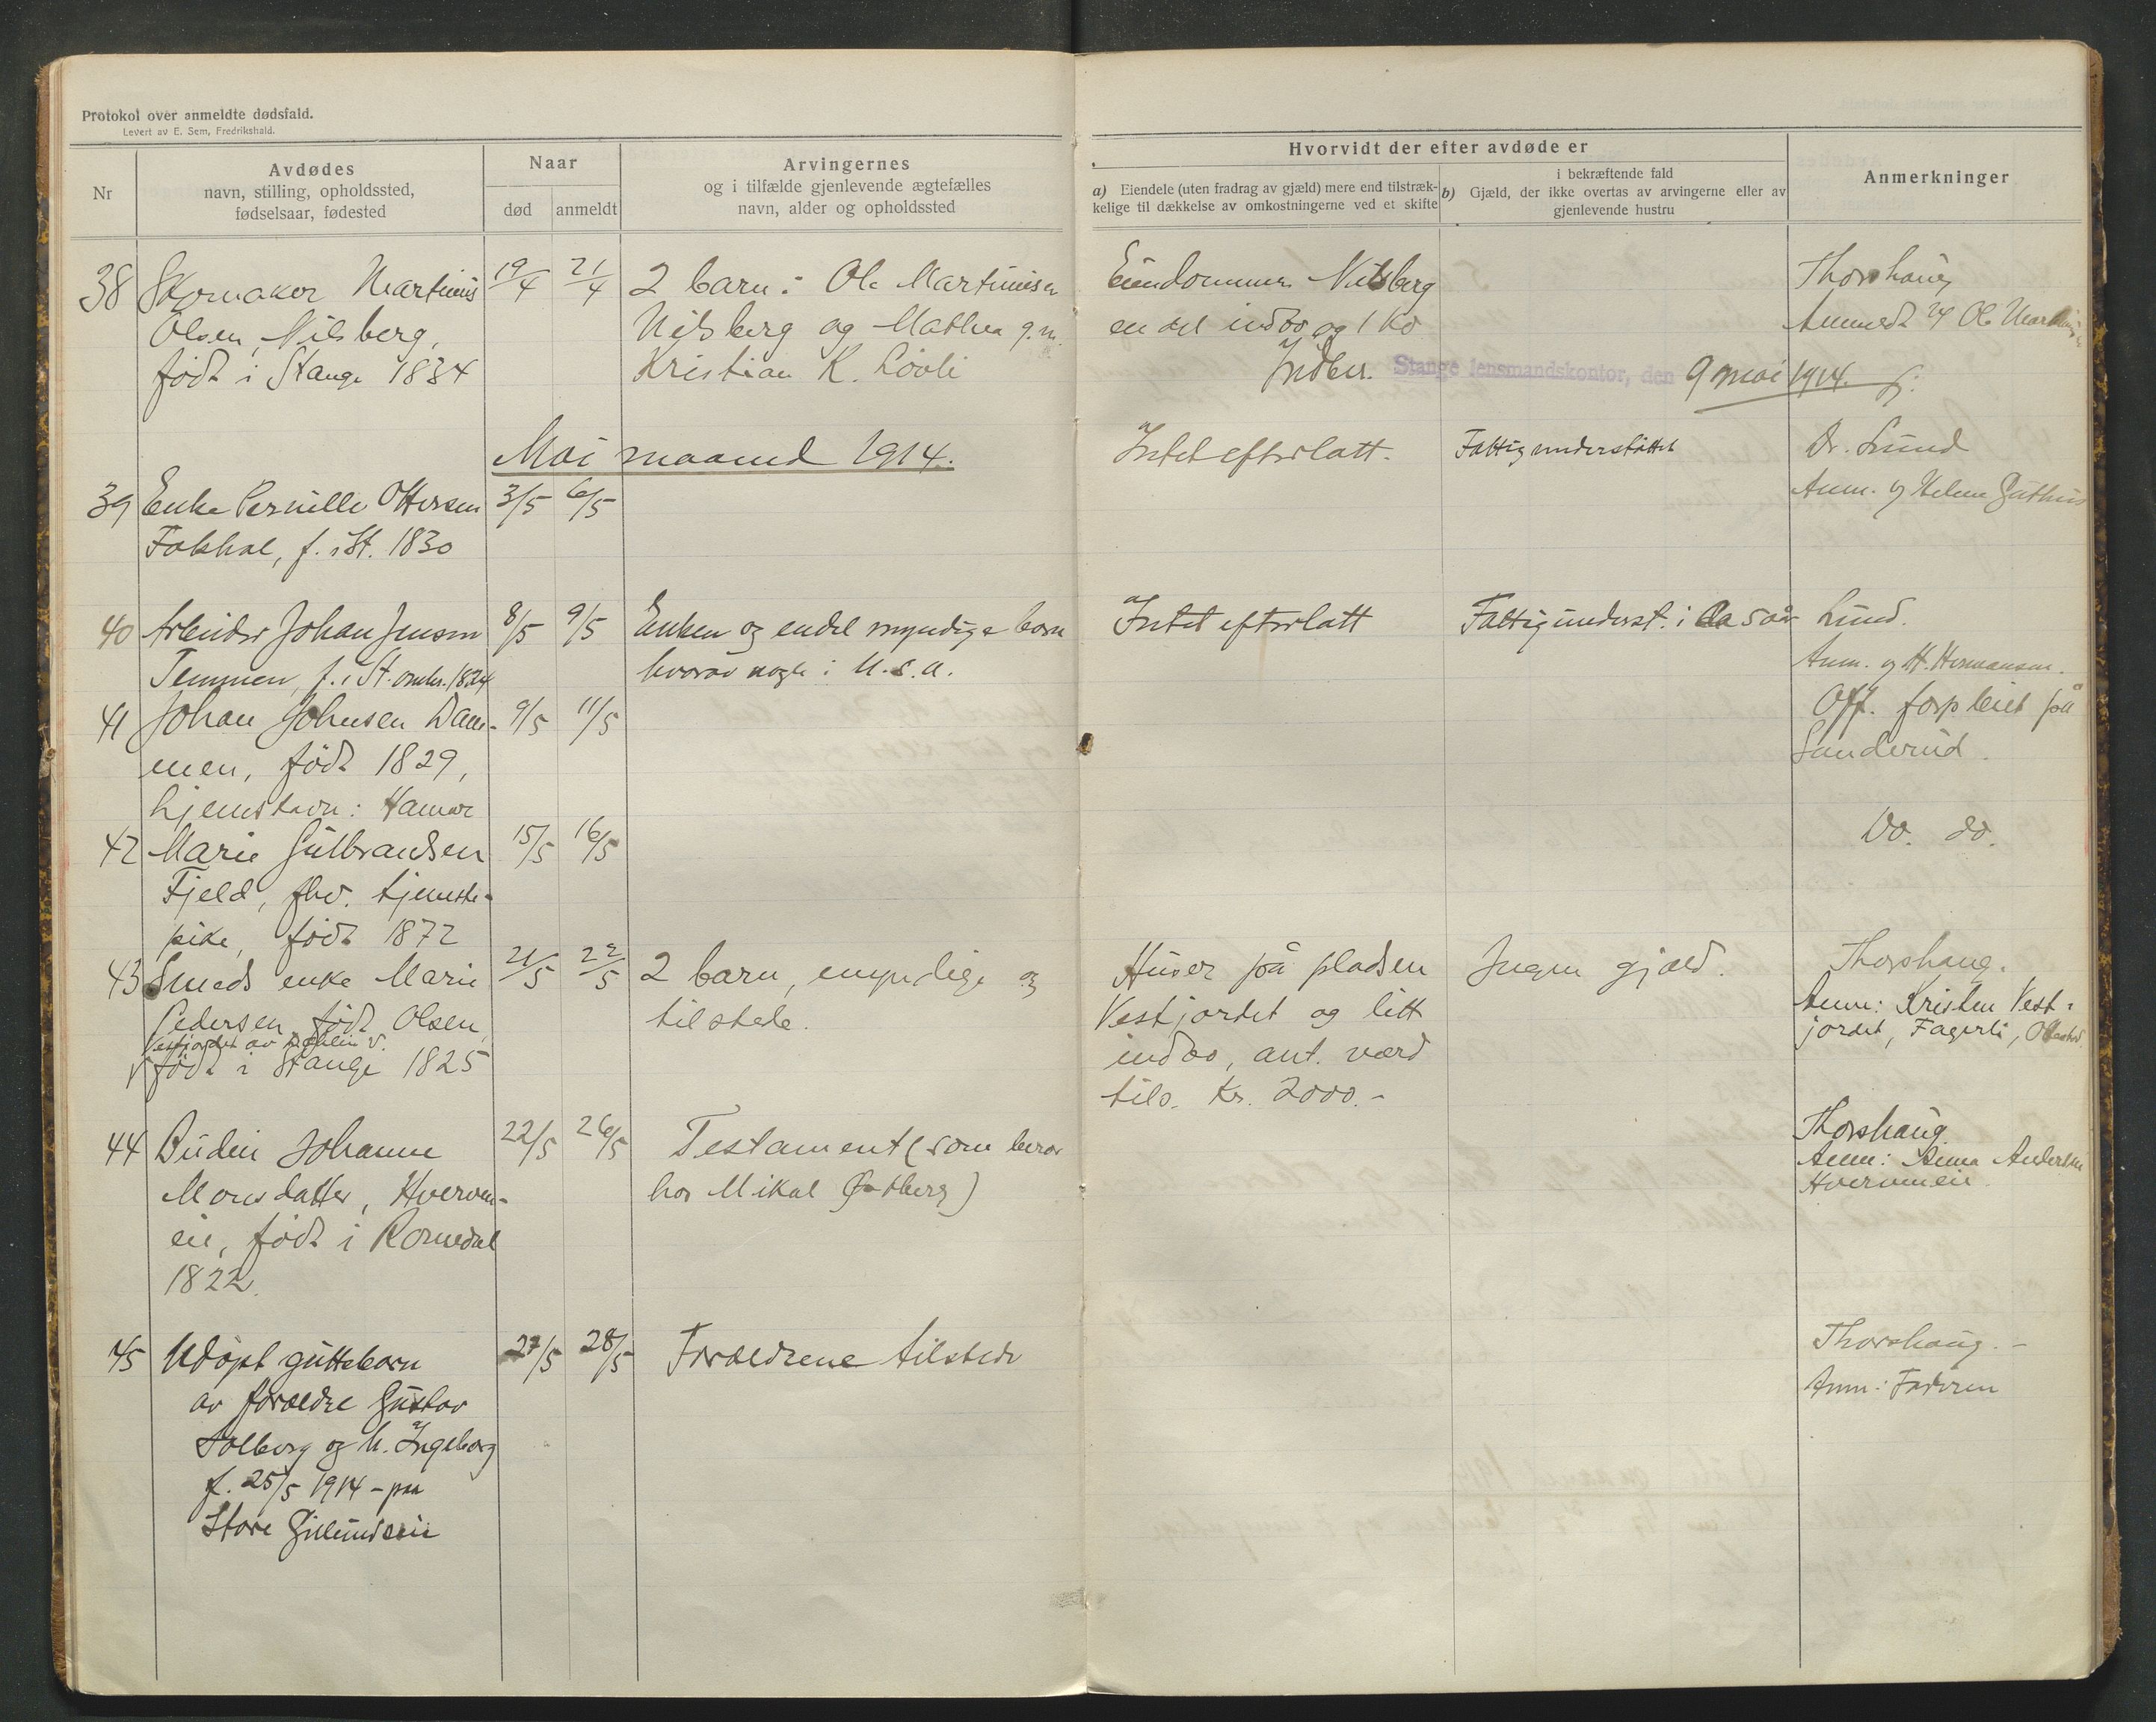 Protokol over anmeldte dødsfald.
Levert av E. Sem, Fredrikshald.
Nr
Avdødes
navn, stilling, opholdssted,
fødselsaar, fødested
Naar
død
anmeldt
Arvingernes
og i tilfælde gjenlevende ægtefælles
navn, alder og opholdssted
Hvorvidt der efter avdøde er
a) Eiendele (uten fradrag av gjæld) mere end tilstræk-
kelige til dækkelse av omkostningerne ved et skifte
i bekræftende fald
b) Gjæld, der ikke overtas av arvingerne eller av
gjenlevende hustru
Anmerkninger
38
Skomaker Martinius
Olsen, Nilsberg,
født i Stange 1834
19/4
21/4
2 barn: Ole Martinisen
Nilsberg og Mathea g.m.
Kristian K. Lövli
Eiendommen Nilsberg
en del indbo og 1 ko
Indber. Stange lensmandskontor, den 9 mai 1914.
Thorshaug
Anmeldt af Ole
Mai maaned 1914.
39
Enke Pernille Ottersen
f. i St. 1830
3/5
6/5
Intet efterlatt.
Fattigunderstöttet
Dr. Lund
Anm. af Helene
40
Arbeider Johan Jensen
Temmen, f. i St. omkr. 1834
8/5
9/5
Enken og endel myndige barn
hvorav nogle i U.S.A.
Intet efterlatt
Fattigunderst. i ca 5 år
Lund.
Anm. af H. Hermansen.
41
Johan Johnsen Dam-
men, født 1829,
hjemstavn: Hamar
9/5
11/5
Off. forpleiet på
Sanderud.
42
Marie Gulbrandsen
Fjeld, fhv. tjeneste-
pike, født 1872
15/5
16/5
Do. do.
43
Smeds enke Marie
Pedersen født Olsen,
Vestjordet av
født i Stange 1825
21/5
22/5
2 barn, myndige og
tilstede.
Huser på pladsen
Vestjordet og litt
indbo, ant. værd
tils. Kr. 2000.-
Ingen gjæld.
Thorshaug.
Anm: Kristen Vest-
jordet, Fagerli,
44
Budeie Johanne
Monsdatter, Hverven-
eie, født i Romedal
1822.
22/5
26/5
Testament (som beror
hos Mikal Østberg)
Thorshaug.
Anm: Anna Andersen
45
Udöpt guttebarn
av foraeldre Gustav
Solberg og h. Ingeborg
f. 25/5 1914 - paa
Store
27/5
28/5
Foraeldrene tilstede
Thorshaug. -
Anm: Faderen